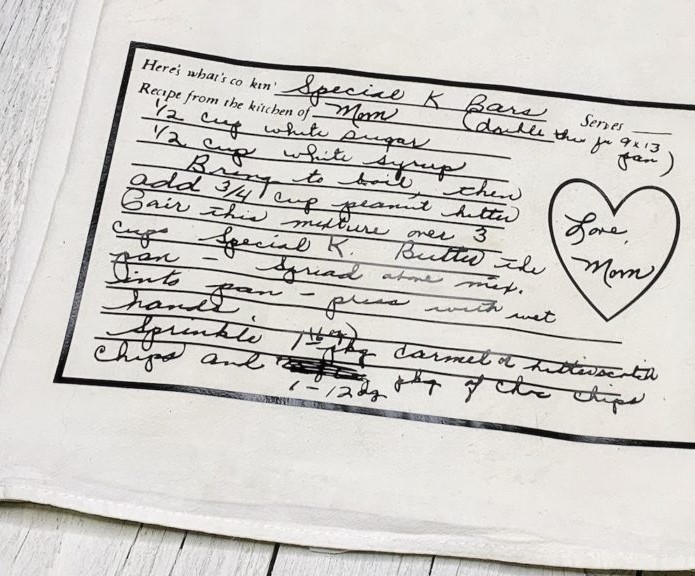 Here's what's co kin' Special K Bars
Recipe from the kitchen of Mom Serves
(double this for 9x13 pan)
1/2 cup white sugar
1/2 cup white syrup
Bring to boil, then
add 3/4 cup peanut butter
Pair this mixture over 3
cups Special K. Butter the
pan - Spread above mix.
into pan - press with wet
hands.
Sprinkle 1 pkg carmel or butterscotch
chips and 1-12 oz pkg of choc chips
Love,
Mom